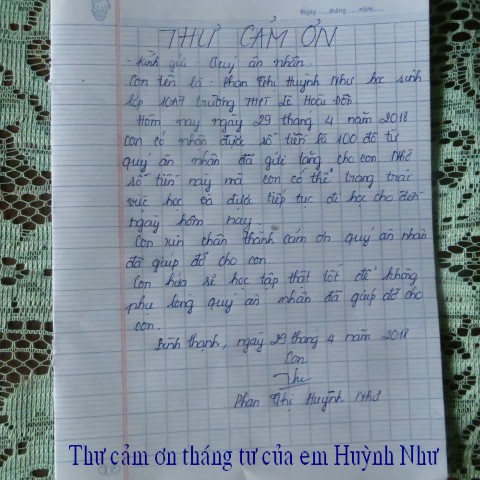 Ngày ...... tháng ...... năm ......
THƯ CẢM ƠN
- Kính gửi Quý ân nhân.
Con tên là: Phan Thị Huỳnh Như học sinh
lớp 10A7 trường THPT Lê Hoàng Đôn.
Hôm nay ngày 29 tháng 4 năm 2018
con có nhận được số tiền là 100 đô từ
quý ân nhân đã gửi tặng cho con. Nhờ
số tiền này mà con có thể trang trải
việc học và được tiếp tục đi học cho đến
ngày hôm nay.
Con xin chân thành cám ơn quý ân nhân
đã giúp đỡ cho con.
Con hứa sẽ học tập thật tốt để không
phụ lòng quý ân nhân đã giúp đỡ cho
con.
Bình thạnh, ngày 29 tháng 4 năm 2018
Con
Như
Phan Thị Huỳnh Như
Thư cảm ơn tháng tư của em Huỳnh Như